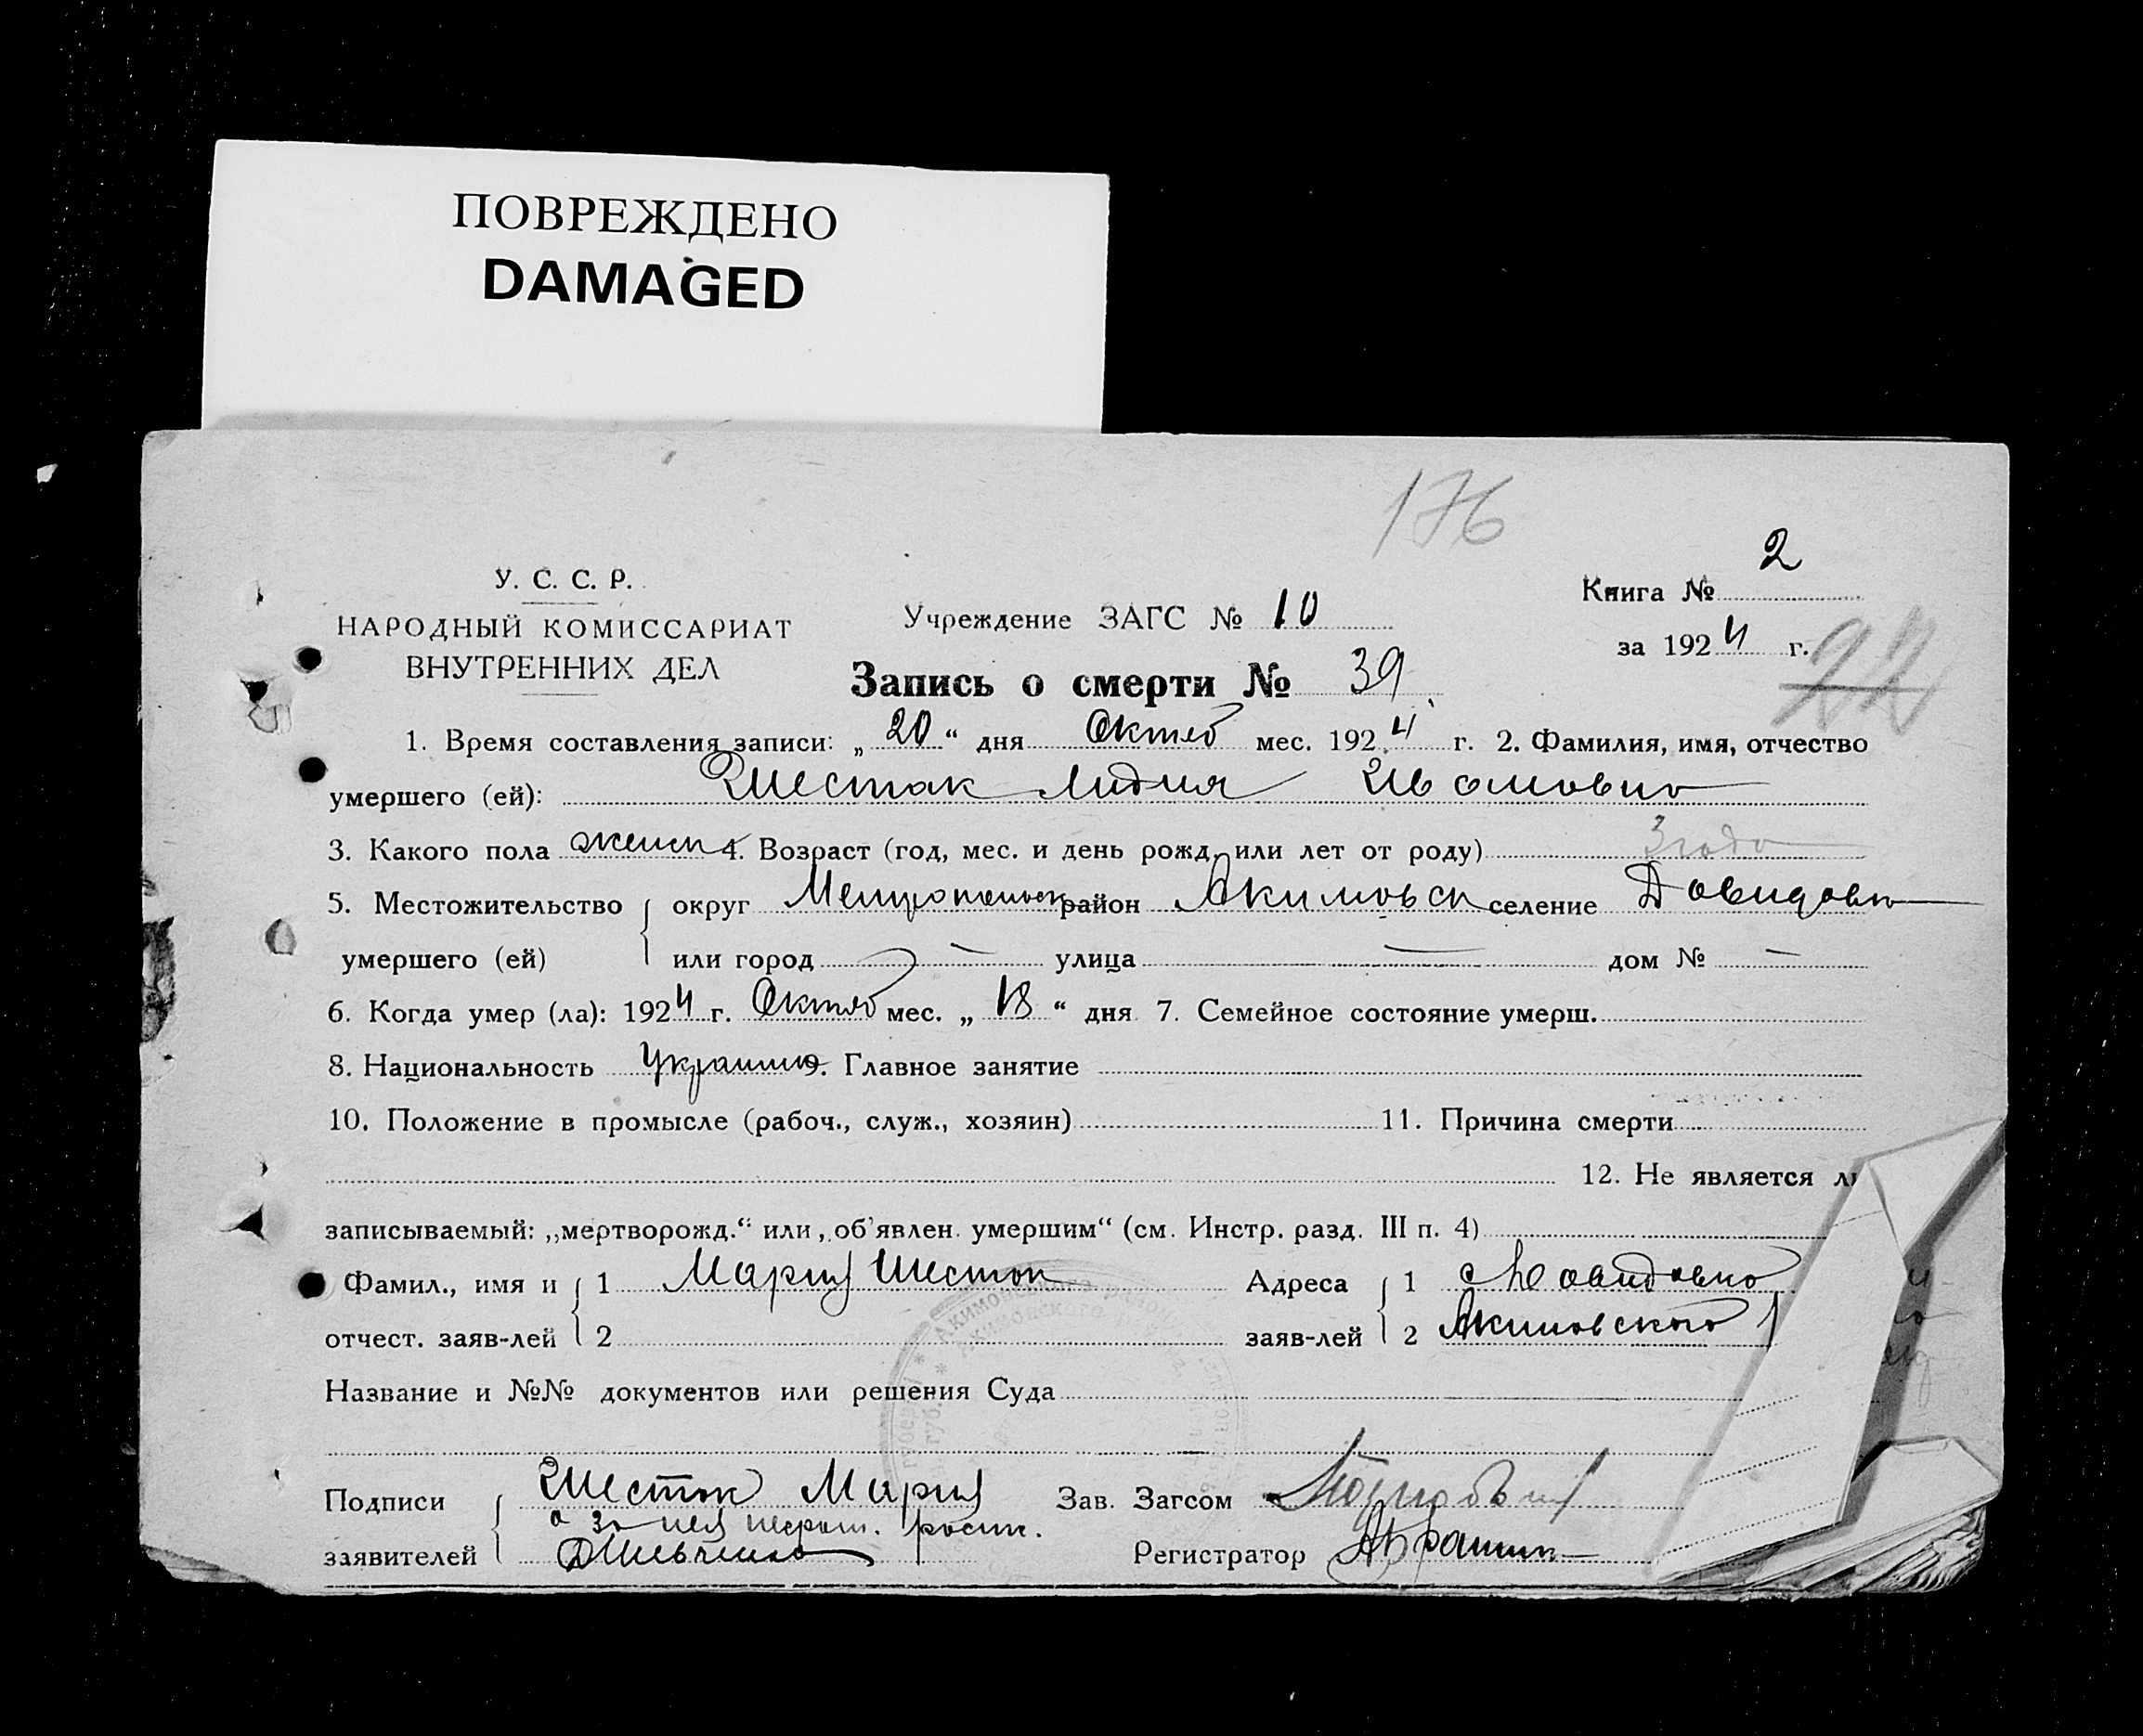 ПОВРЕЖДЕНО
DAMAGED
176
У. С. С. Р.
НАРОДНЫЙ КОМИССАРИАТ
ВНУТРЕННИХ ДЕЛ
Учреждение ЗАГС № 10
Книга № 2
за 1924 г.
22
Запись о смерти № 39
1. Время составления записи: „20“ дня Октяб мес. 1924 г. 2. Фамилия, имя, отчество
умершего (ей): Шестак Лидия Ивановна
3. Какого пола женск 4. Возраст (год, мес. и день рожд. или лет от роду) 3 года
5. Местожительство округ Мелитопольск район Акимовск селение Давидовка
умершего (ей) или город — улица — дом № —
6. Когда умер (ла): 1924 г. Октяб мес. „18“ дня 7. Семейное состояние умерш.
8. Национальность Украинка 9. Главное занятие
10. Положение в промысле (рабоч., служ., хозяин) 11. Причина смерти
12. Не является ли
записываемый: „мертворожд.“ или „об'явлен. умершим“ (см. Инстр. разд. III п. 4)
Фамил., имя и 1 Мария Шесток Адреса 1 с Давидовка
отчест. заяв-лей 2 заяв-лей 2 Акимовского
Название и №№ документов или решения Суда
Подписи Шесток Мария Зав. Загсом
а за нея неграм. росп.
заявителей Шевченко Регистратор